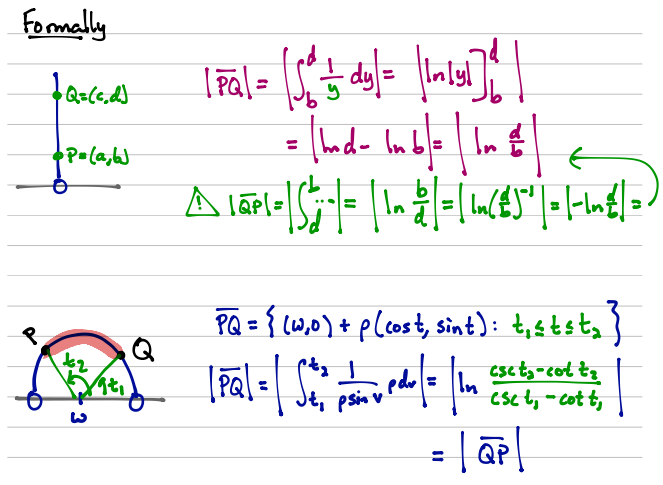 Formally
Q=(c,d)
P=(a,b)
|PQ̅| = |∫_b^d 1/y dy| = |ln|y|]_b^d|
= |ln d - ln b| = |ln d/b|
⚠ |QP̅| = |∫_d^b ...| = |ln b/d| = |ln(d/b)^-1| = |-ln d/b| =
P
Q
t₂
t₁
w
PQ̅ = { (w,0) + ρ(cos t, sin t) : t₁ ≤ t ≤ t₂ }
|PQ̅| = |∫_t₁^t₂ 1/(ρ sin v) ρ dv| = |ln (csc t₂ - cot t₂)/(csc t₁ - cot t₁)|
= |QP̅|